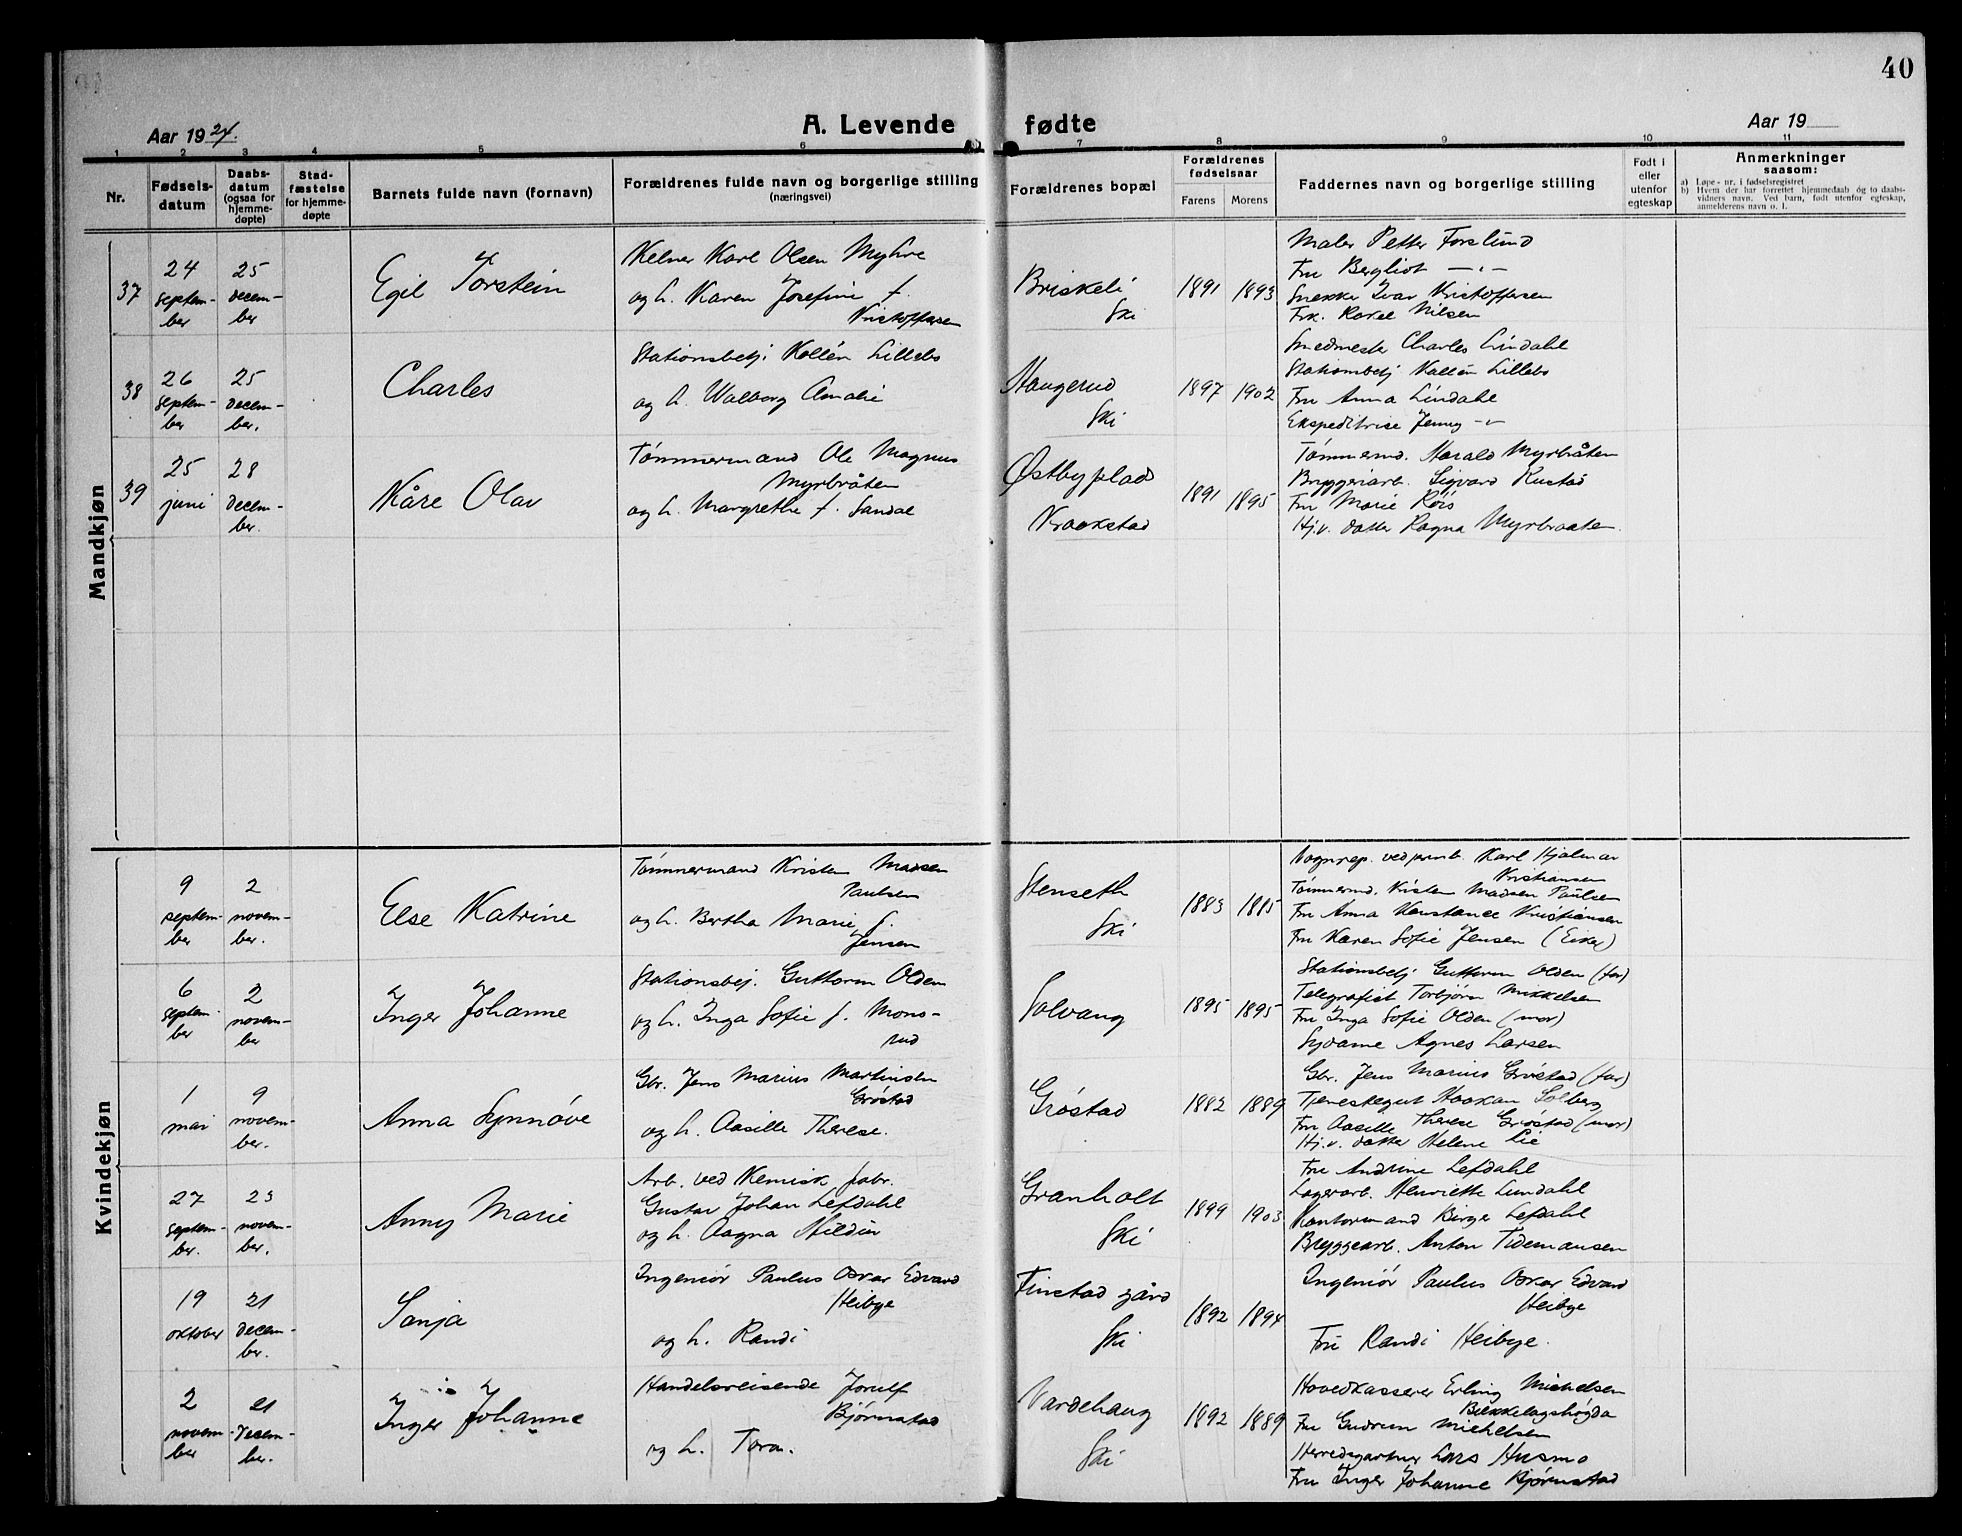 40
Aar 1924.
A. Levende fødte
Aar 19
1 2 3 4 5 6 7 8 9 10 11
Nr.
Fødsels-
datum
Daabs-
datum
(ogsaa for
hjemme-
døpte)
Stad-
fæstelse
for hjemme-
døpte
Barnets fulde navn (fornavn)
Forældrenes fulde navn og borgerlige stilling
(næringsvei)
Forældrenes bopæl
Forældrenes
fødselsaar
Farens Morens
Faddernes navn og borgerlige stilling
Født i
eller
utenfor
egteskap
Anmerkninger
saasom:
a) Løpe-nr. i fødselsregistret
b) Hvem der har forrettet hjemmedaab og to daabs-
vidners navn. Ved barn, født utenfor egteskap,
anmelderens navn o. l.
Mandkjøn
37
24
septem-
ber
25
decem-
ber
Egil Torstein
Kelner Karl Olsen Myhre
og h. Karen Josefine f.
Kristoffersen
Briskeli
Ski
1891 1893
Maler Petter Forslund
Fru Bergliot —"—
Snekker Ivar Kristoffersen
Frk. Rakel Nilsen
38
26
septem-
ber
25
decem-
ber.
Charles
Stationsbetj. Kollén Lillebo
og h. Walborg Amalie
Haugerud
Ski
1897 1902
Smedmester Charles Lindahl
Stationsbetj Kollén Lillebo
Fru Anna Lindahl
Ekspeditrise Jenny —"—
39
25
juni
28
decem-
ber.
Kåre Olav
Tømmermand Ole Magnus
Myrbråten
og h. Margrethe f. Sandal
Østbyplad
Kraakstad
1891 1895
Tømmermd. Harald Myrbråten
Bryggeriarb. Sigvard Rustad
Fru Marie Røis
Hj.v. datter Ragna Myrbraaten.
Kvindekjøn
9
septem-
ber
2
novem-
ber.
Else Katrine
Tømmermand Kristen Madsen
Paulsen
og h. Bertha Marie f.
Jensen
Stenseth
Ski
1883 1885
Vognrep. ved jernb. Karl Hjalmar
Kristiansen
Tømmermd. Kristen Madsen Paulsen
Fru Anna Konstance Kristiansen
Fru Karen Sofie Jensen
6
septem-
ber
2
novem-
ber
Inger Johanne
Stationsbetj. Guttorm Olden
og h. Inga Sofie f. Mons-
rud
Solvang
1895 1895
Stationsbetj Guttorm Olden (far)
Telegrafist Torbjørn Mikkelsen
Fru Inga Sofie Olden (mor)
Sydame Agnes Larsen
1
mai
9
novem-
ber.
Anna Synnøve
Gbr. Jens Marius Martinsen
Grøstad
og h. Aasille Therese.
Grøstad
1882 1889
Gbr. Jens Marius Grøstad (far)
Tjenestegut Haakon Solberg
Fru Aasille Therese Grøstad (mor)
Hj.v. datter Helene Lie
27
septem-
ber.
23
novem-
ber.
Anny Marie
Arb. ved Kemisk fabr.
Gustav Johan Lefdahl
og h. Aagna Hildur
Granholt
Ski
1899 1903
Fru Andrine Lefdahl
Lagerarb. Henriette Lundahl
Kontormand Birger Lefdahl
Bryggearb. Anton Tidemansen
19
oktober
21
decem-
ber.
Sonja
Ingeniør Paulus Oskar Edvard
Heibye
og h. Randi
Finstad gård
Ski
1892 1894
Ingeniør Paulus Oskar Edvard
Heibye
Fru Randi Heibye.
2
novem-
ber
21
decem-
ber.
Inger Johanne
Handelsreisende Jorulf
Bjørnstad
og h. Tora.
Vardehaug
Ski
1892 1889
Hovedkasserer Erling Michelsen
Bekkelagshøgda
Fru Gudrun Michelsen
Herredsgartner Lars Husmo
Fru Inger Johanne Bjørnstad